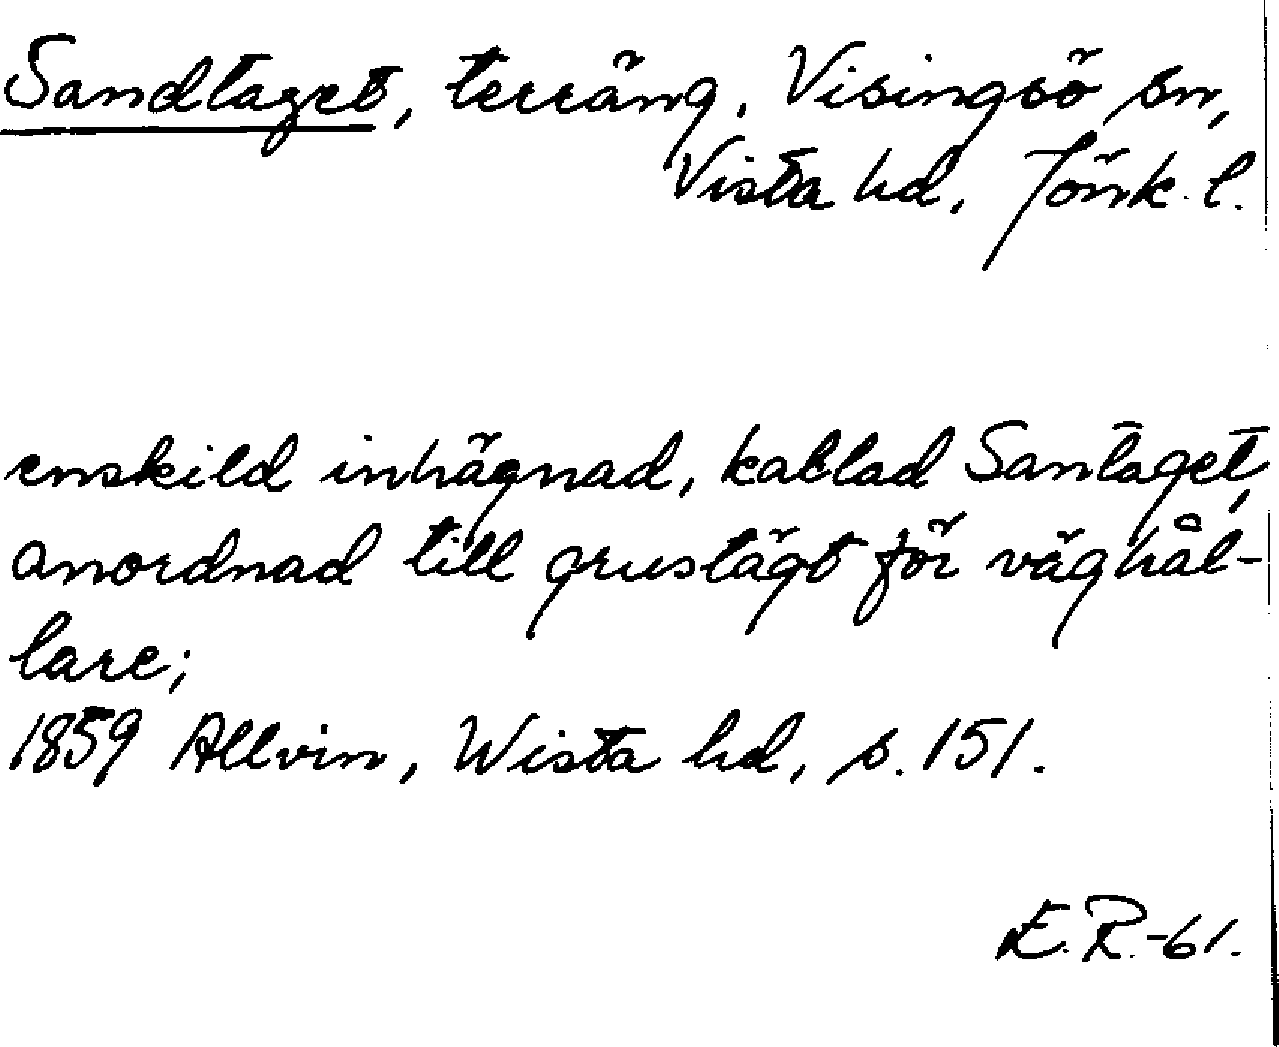 Sandtaget, terräng, Visingsö sn,
Vista hd, Jönk. l.
enskild inhägnad, kallad Santaget,
anordnad till grustägt för väghål-
lare;
1859 Allvin, Wista hd, s. 151.
E.R.-61.